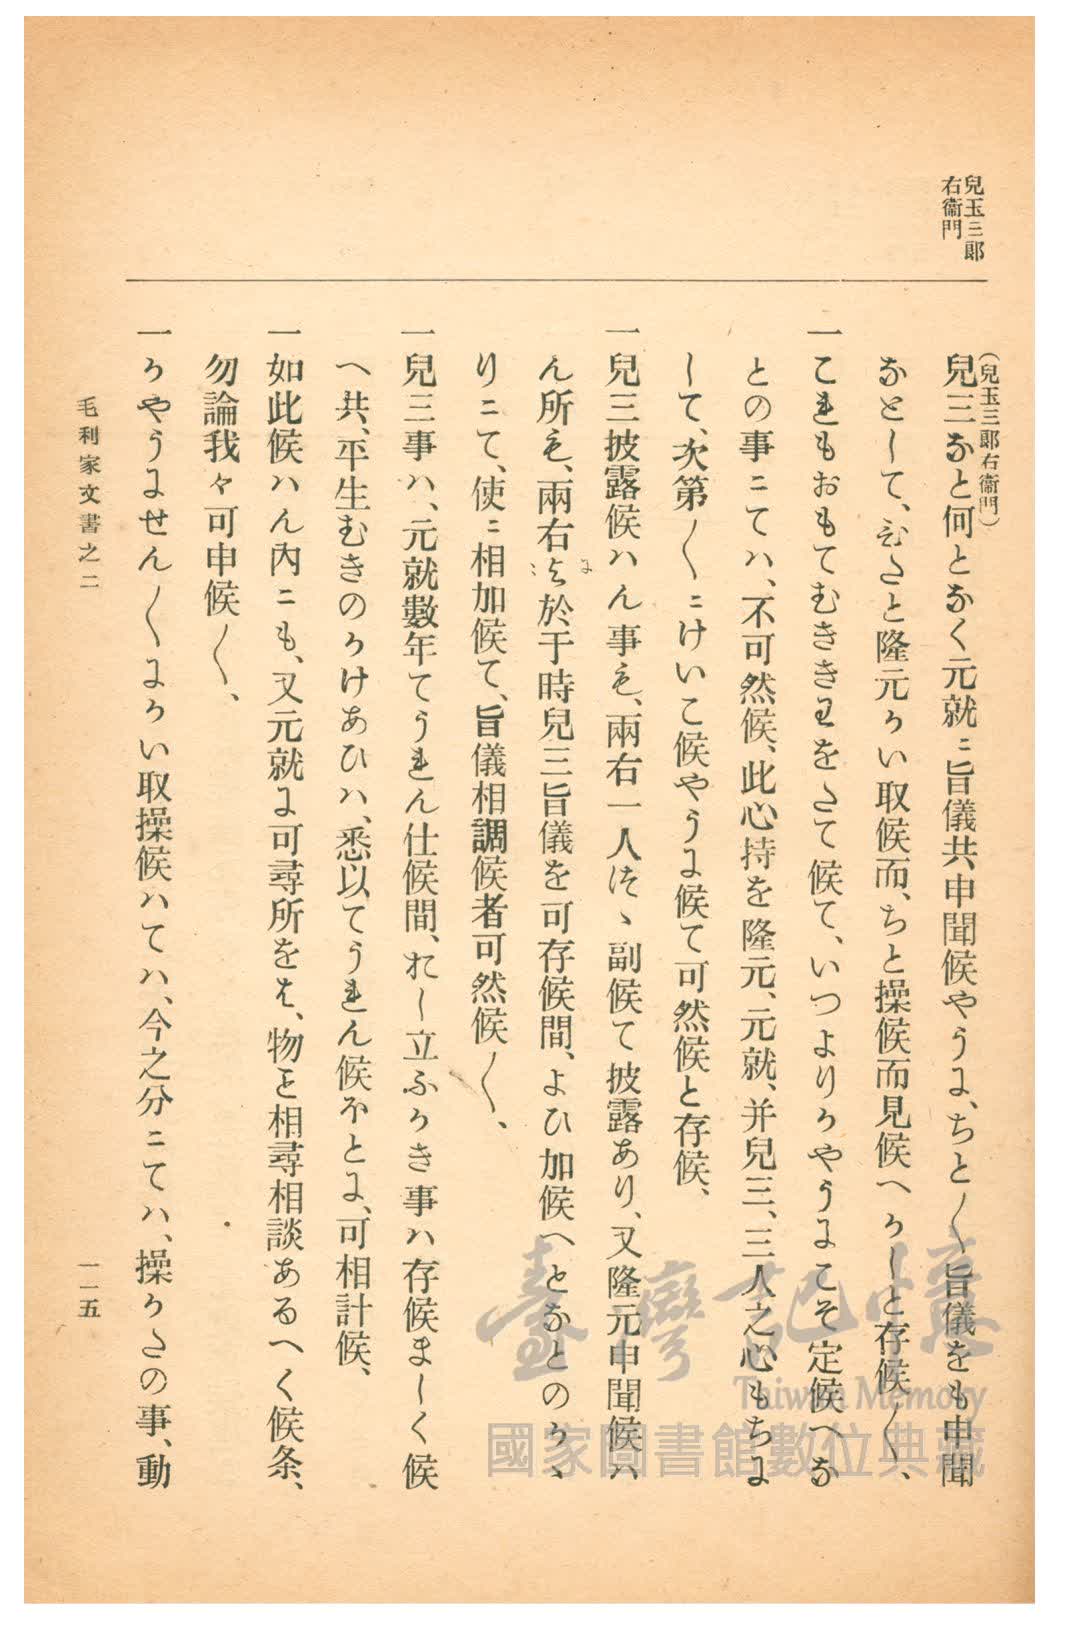 兒玉三郞
右衞門
(兒玉三郞右衞門)
兒三なと何となく元就ニ旨儀共申聞候やうに、ちと〱旨儀をも申聞
なとして、ひたと隆元かい取候而、ちと操候而見候へかしと存候〱、
一これもおもてむききわをたて候て、いつよりかやうにこそ定候へな
との事ニてハ、不可然候、此心持を隆元、元就、并兒三、三人之心もちに
して、次第〱ニけいこ候やうに候て可然候と存候、
一兒三披露候ハん事も、兩右一人つゝ副候て披露あり、又隆元申聞候ハ
ん所も、兩右に於于時兒三旨儀を可存候間、よひ加候へとなとのかゝ
りニて、使ニ相加候て、旨儀相調候者可然候〱、
一兒三事ハ、元就數年てうれん仕候間、おし立ふかき事ハ存候ましく候
へ共、平生むきのかけあひハ、悉以てうれん候ほとに、可相計候、
一如此候ハん內ニも、又元就に可尋所をは、物を相尋相談あるへく候条、
勿論我々可申候〱、
一かやうにせん〱にかい取操候ハてハ、今之分ニてハ、操かたの事、動
毛利家文書之二
一一五
臺灣記憶
Taiwan Memory
國家圖書館數位典藏